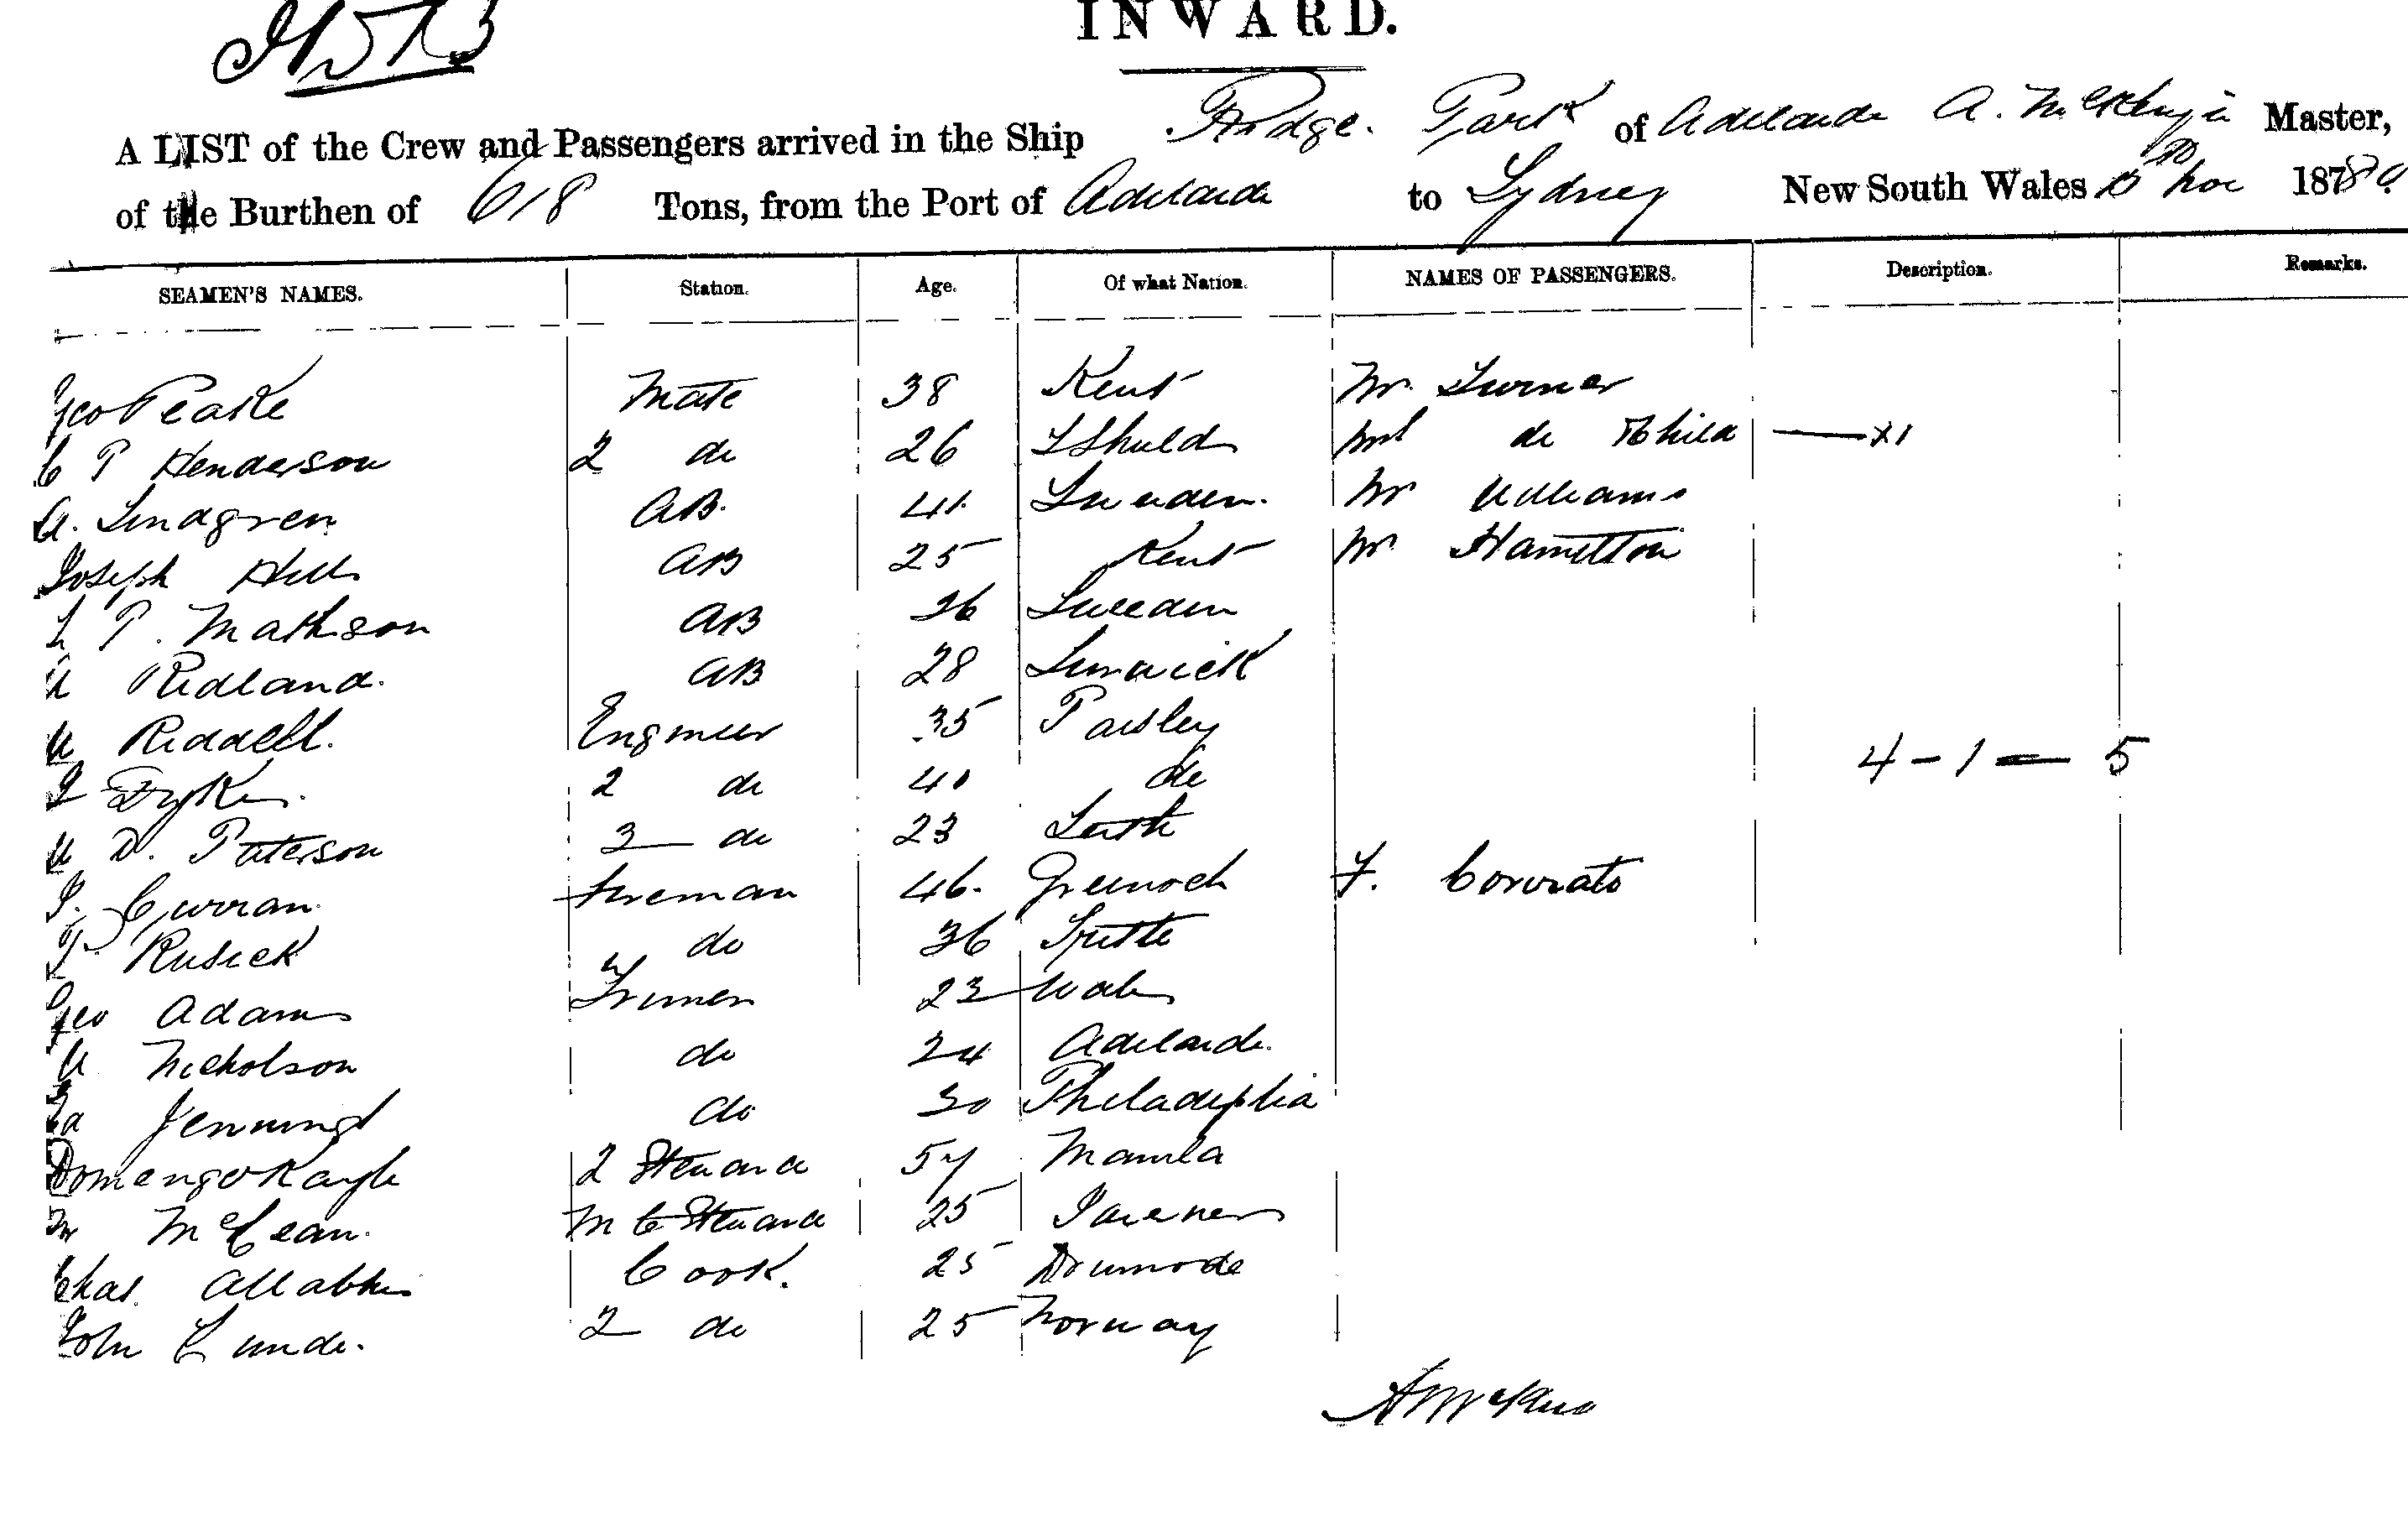 INWARD.
A LIST of the Crew and Passengers arrived in the Ship Ridge Park of Adelaide A. McKenzie Master,
of the Burthen of 618 Tons, from the Port of Adelaide to Sydney New South Wales Nov 1880
SEAMEN'S NAMES. Station. Age. Of what Nation. NAMES OF PASSENGERS. Description. Remarks.
Geo Peake Mate 38 Kent Mr Turner
C P Henderson 2 do 26 Mrs do & Child — x1
A. Lindgren AB. 41 Sweeden. Mr Williams
Joseph Hill AB 25 Kent Mr Hamilton
L P. Mathson AB 26 Sweeden
W Ridland. AB 28 Lerwick
W Riddell. Engineer 35 Paisley
J Dykes. 2 do 40 do 4 – 1 — 5
W D. Paterson 3 do 23 Leith
J. Curran Fireman 46. Greenock F. Corvrato
T. Kusick do 36 
Geo Adams Trimer 23 Wales
W Nicholson do 24 Adelaide
Jennings do 30 Philadephia
Domengo 2 Steward 57 Manila
McLean. M C Steward 25
Chas. Cook. 25
John Lunde. 2 do 25 Norway